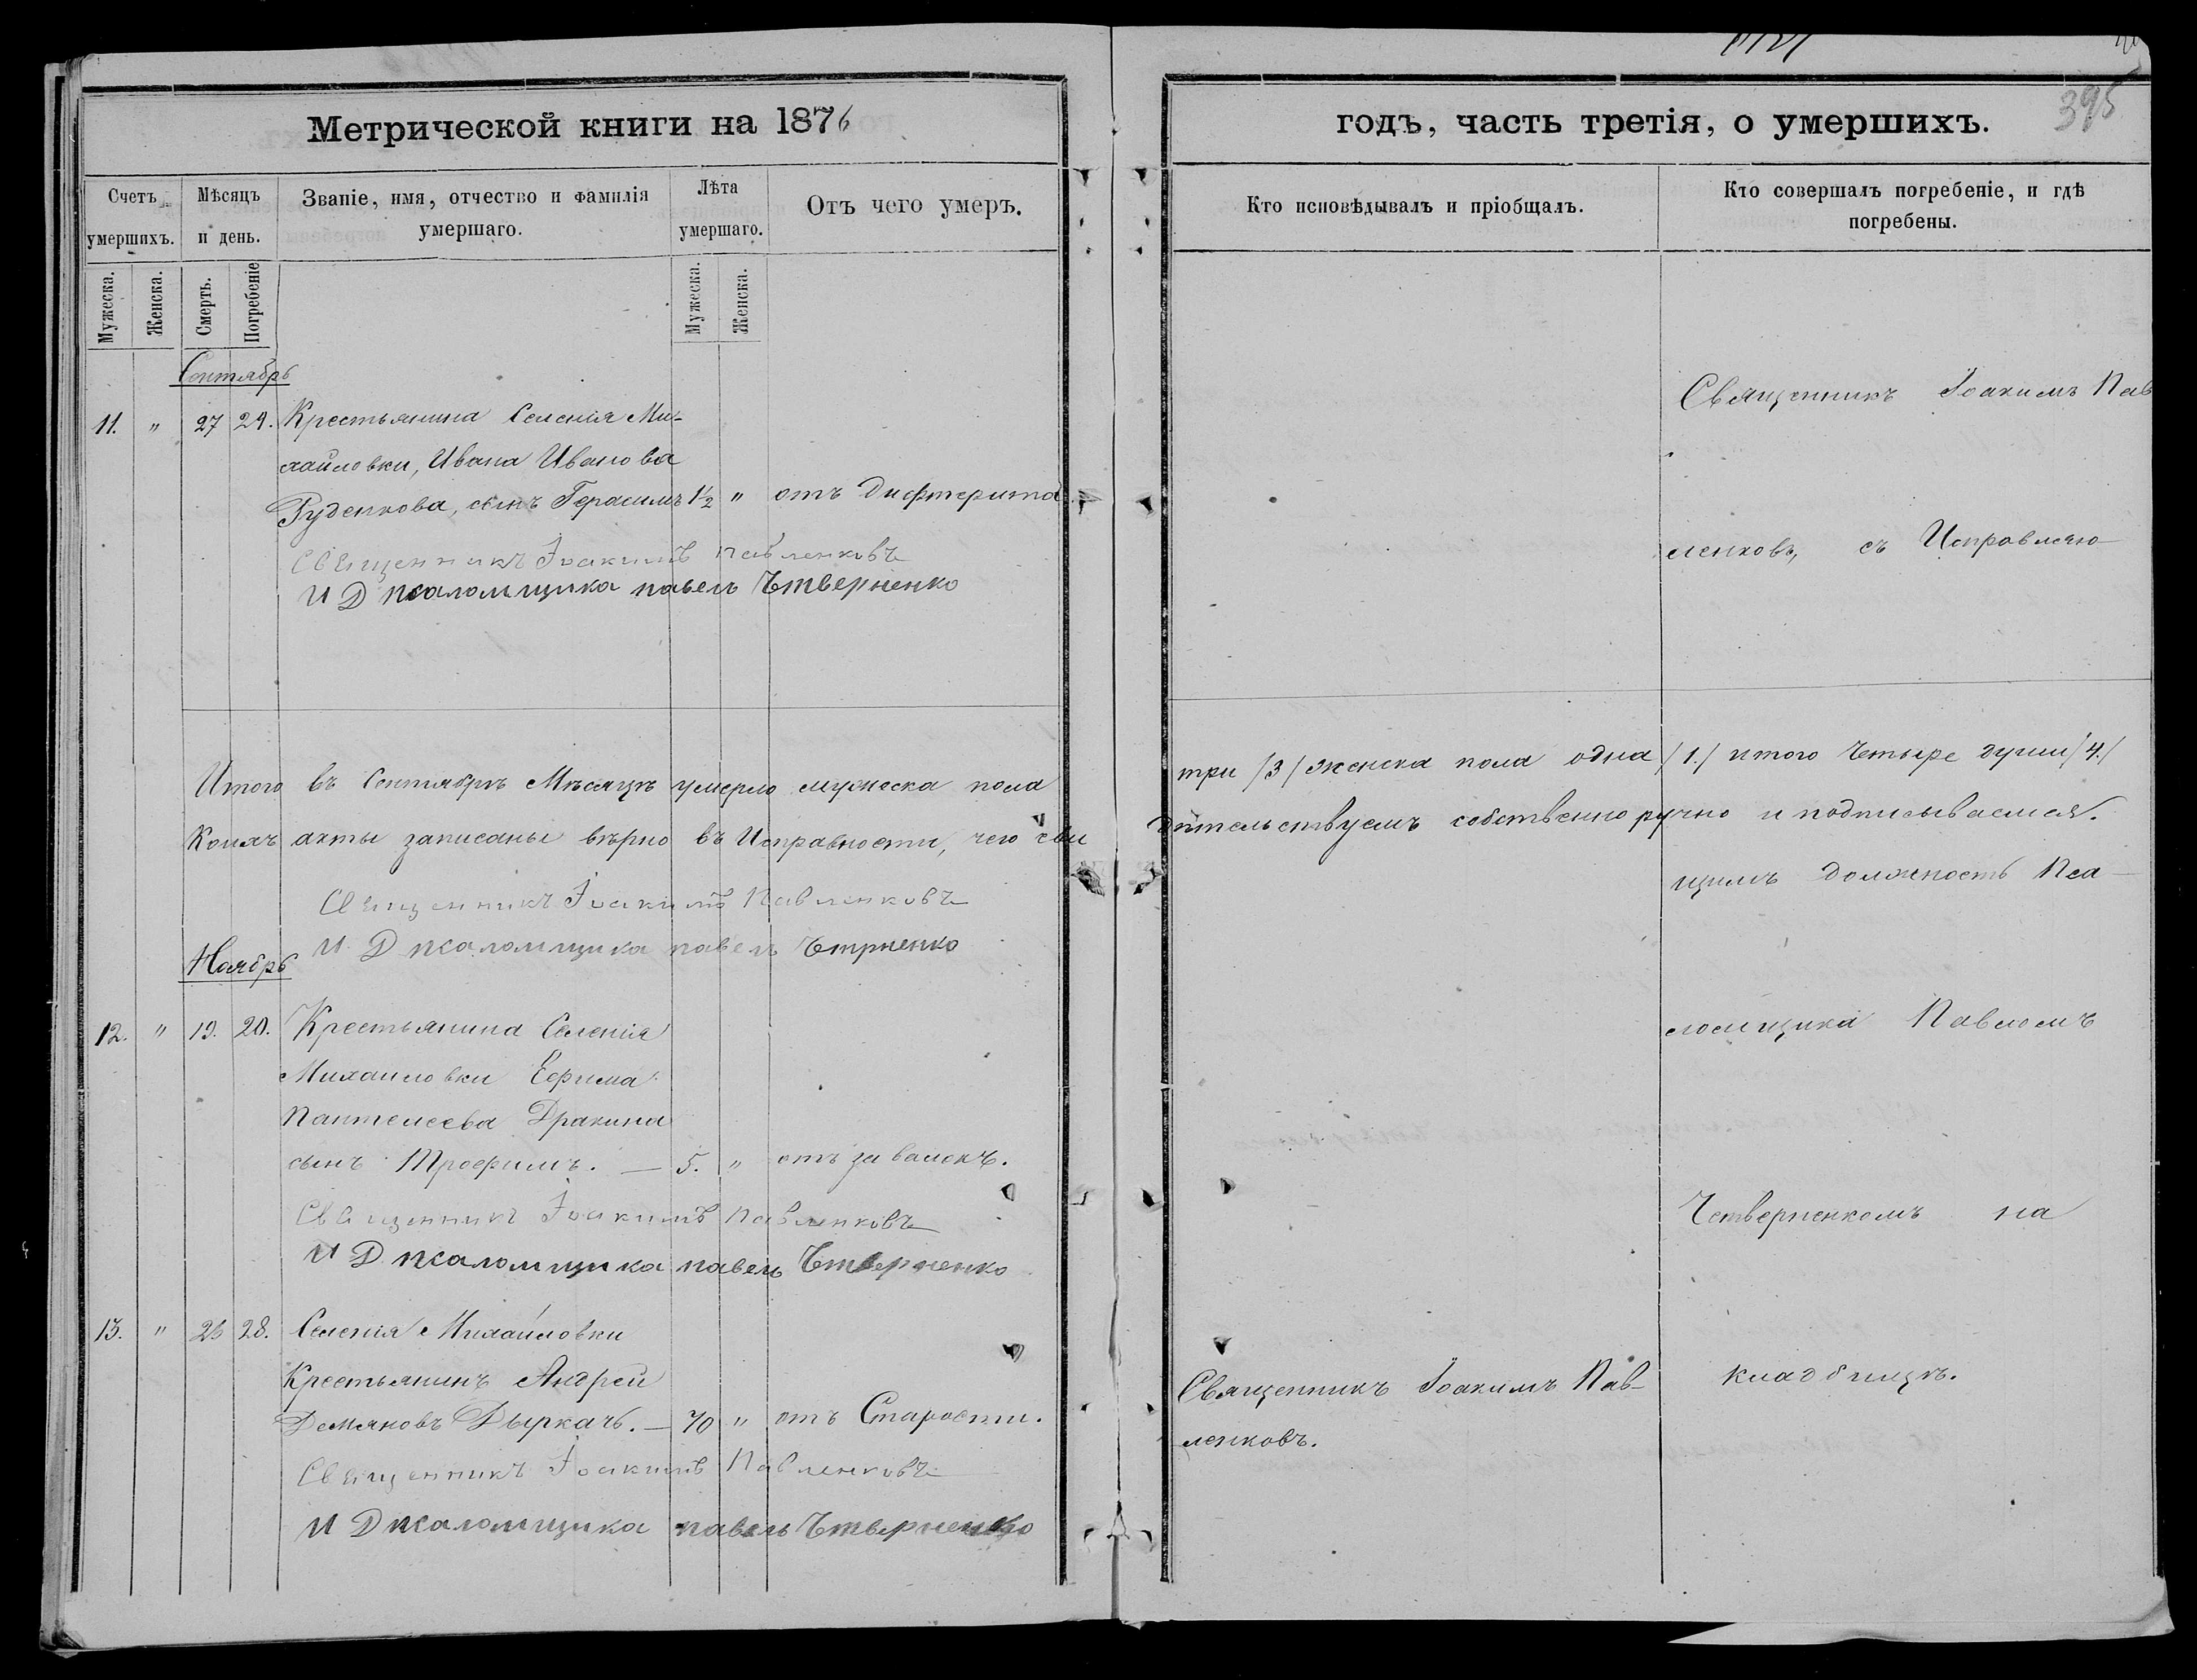 Метрической книги на 1876
Счетъ умершихъ.
Мѣсяцъ и день.
Званіе, имя, отчество и фамилія умершаго.
Лѣта умершаго.
Отъ чего умеръ.
Мужеска.
Женска.
Смерть.
Погребеніе
Мужеска.
Женска.
Сентябрь
11. " 27 29. Крестьянина Селенія Ми-
хайловки, Ивана Иванова
Руденкова, сынъ Герасимъ 1½ " отъ дифтерита
Священникъ Іоакимъ Павленковъ
И Д псаломщика павелъ Чтверненко
Итого въ Сентябрѣ Мѣсяцѣ умерло мужеска пола
Коихъ акты записаны вѣрно въ Исправности, чего сви
Священникъ Іоакимъ Павленковъ
И Д псаломщика павелъ Чтрненко
Ноябрь
12. " 19. 20. Крестьянина Селенія
Михаиловки Ефима
Пантелеева Дракина
сынъ Трофимъ. — 5. " отъ завалокъ.
Священникъ Іоакимъ Павленковъ
И Д псаломщика павелъ Чтверненко
13. " 26 28. Селенія Михайловки
Крестьянинъ Андрей
Демяновъ Дыркачъ. — 70 " отъ Старости.
Священникъ Іоакимъ Павленковъ
И Д псаломщика павелъ Чтверненко
395
годъ, часть третія, о умершихъ.
Кто исповѣдывалъ и пріобщалъ.
Кто совершалъ погребеніе, и гдѣ
погребены.
Священникъ Іоакимъ Пав
ленковъ, съ Исправляю-
три /3/ женска пола одна /1./ итого Четыре души /4./
дѣтельствуемъ собственно ручно и подписываемся.
щимъ должность Пса-
ломщика Павломъ
Четверненкомъ на
Священникъ Іоакимъ Пав- кладбищѣ.
ленковъ.